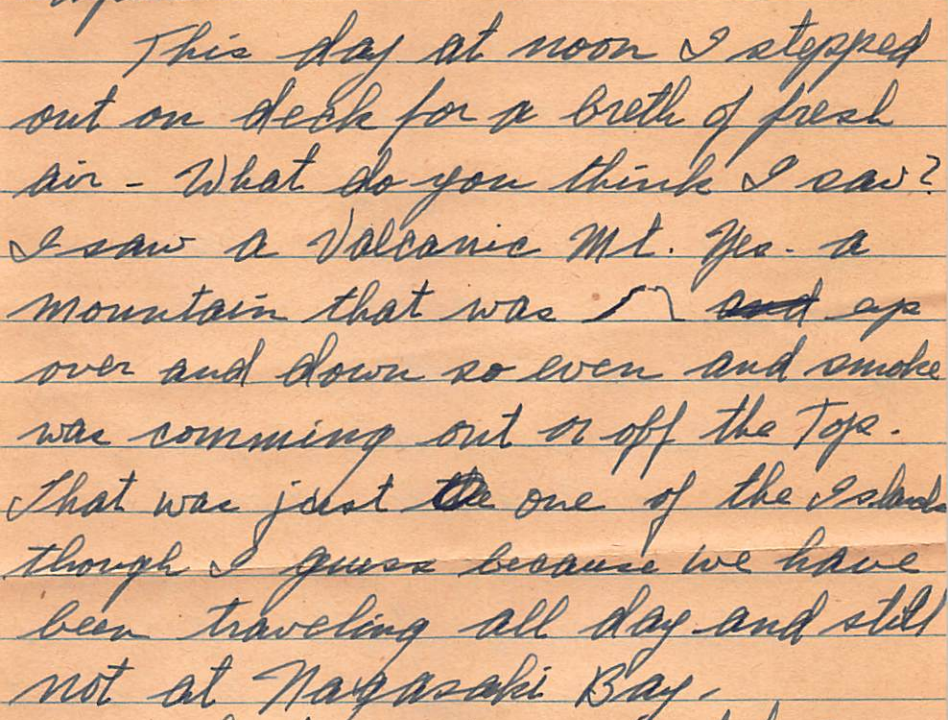 This day at noon I stepped
out on deck for a breth of fresh
air - What do you think I saw?
I saw a Valcanic Mt. Yes. a
mountain that was and up
over and down so even and smoke
was comming out or off the Top.
That was just the one of the Islands
though I guess because we have
been traveling all day and still
not at Nagasaki Bay.